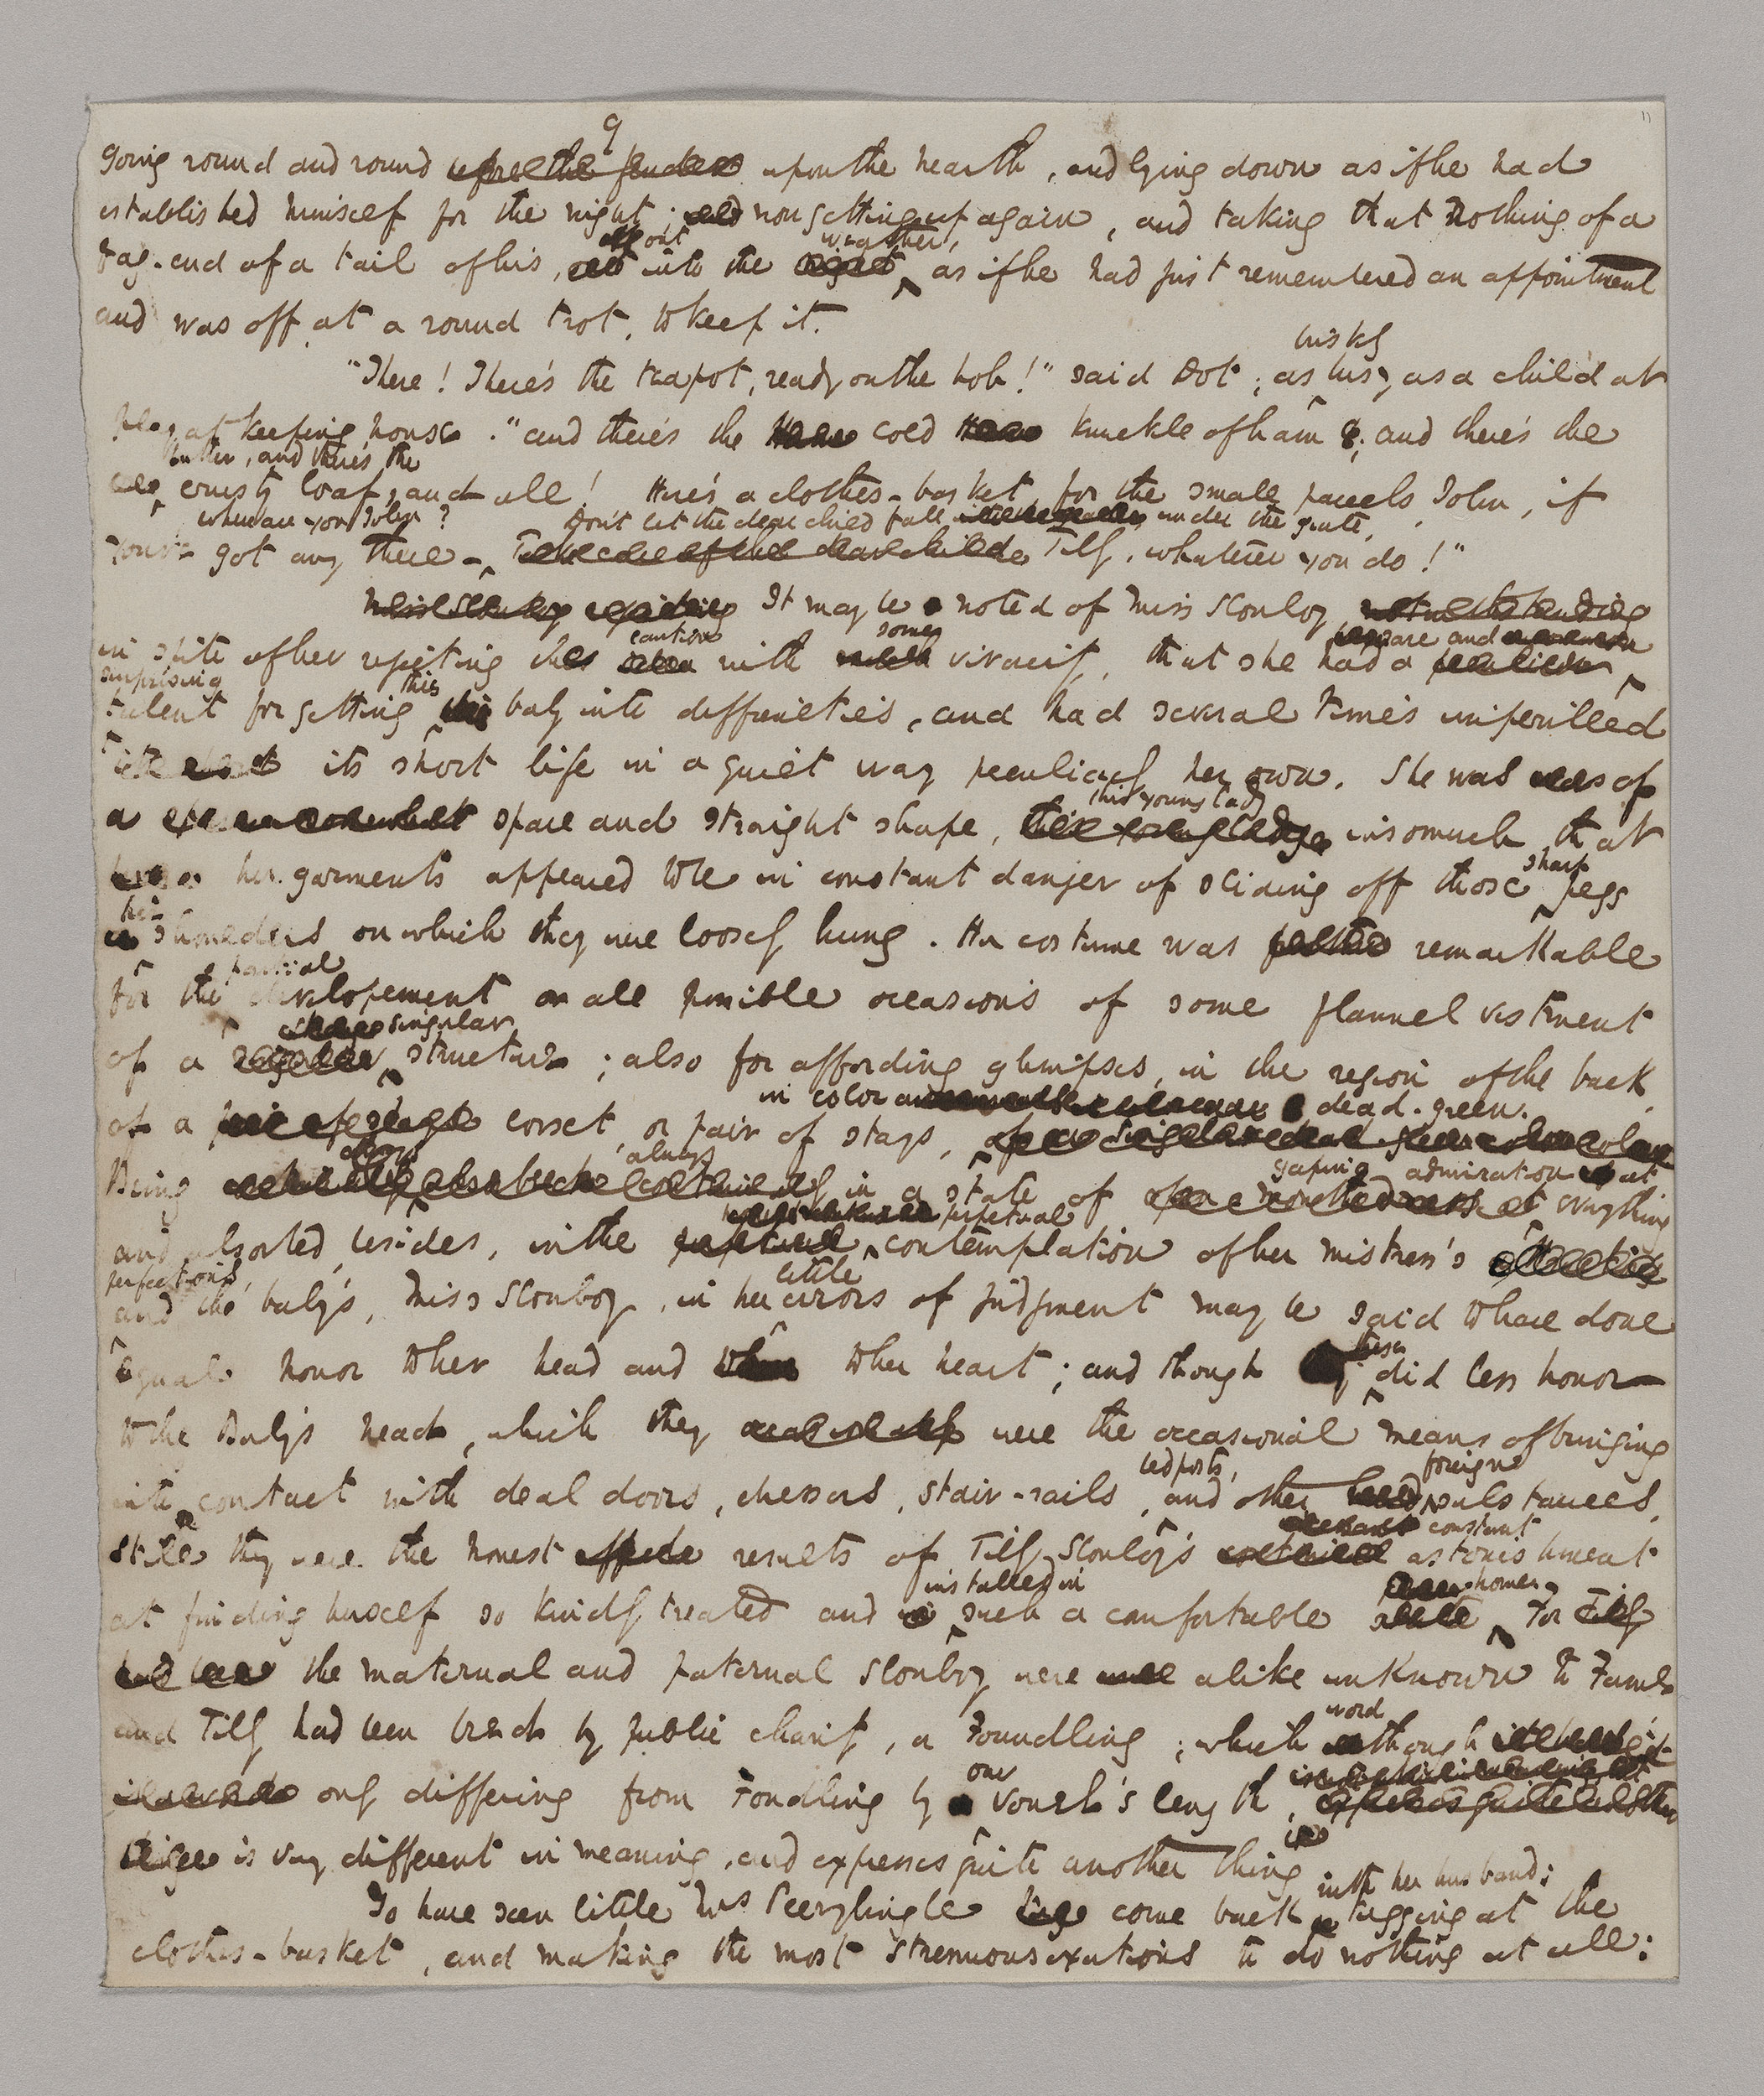 9
11
going round and round before the fender upon the hearth, and lying down as if he had
established himself for the night; and now getting up again, and taking that nothing of a
out weather,
fag-end of a tail of his, out into the night as if he had just remembered an appointment
and was off, at a round trot, to keep it.
briskly
"There! There's the teapot, ready on the hob!" said Dot; as busy as a child at
play at keeping house. "and there's the cold knuckle of ham; and there's the
butter, and there's the
crusty loaf, and all! Here's a clothes-basket for the small parcels, John, if
where are you John? Don't let the dear child fall under the grate,
you've got any there - Take care of the dear child Tilly, whatever you do!"
Miss Slowboy It may be noted of Miss Slowboy notwithstanding
caution some rare and
in spite of her rejecting the with vivacity, that she had a peculiar
surprising this
talent for getting baby into difficulties, and had several times imperilled
its short life in a quiet way peculiarly her own. She was of
this young lady
a spare and straight shape, this young lady insomuch that
sharp
her garments appeared to be in constant danger of sliding off those pegs
her
shoulders on which they were loosely hung. Her costume was remarkable
partial
for the developement on all possible occasions of some flannel vestment
singular
of a structure; also for affording glimpses, in the region of the back,
in color dead-green.
of a pair of stays corset, or pair of stays,
always always gaping admiration at
Being in a state of everything
perpetual
and absorbed, besides, in the contemplation of her mistress's
perfections, little
and the baby's, Miss Slowboy, in her errors of judgment may be said to have done
equal honor to her head and to her heart; and though these did less honor
to the Baby's head, which they were the occasional means of bringing
bedposts, foreign
into contact with deal doors, dressers, stair-rails, and other substances,
constant
still they were the honest results of Tilly Slowboy's continual astonishment
installed in home.
at finding herself so kindly treated and in such a comfortable For Tilly
had been the maternal and paternal Slowboy were alike unknown to Fame
word
and Tilly had been bred by public charity, a Foundling; which though
one
only differing from Fondling by vowel's length,
is very different in meaning, and expresses quite another thing
with her husband;
To have seen little Mrs Peerybingle come back tugging at the
clothes-basket, and making the most strenuous exertions to do nothing at all: